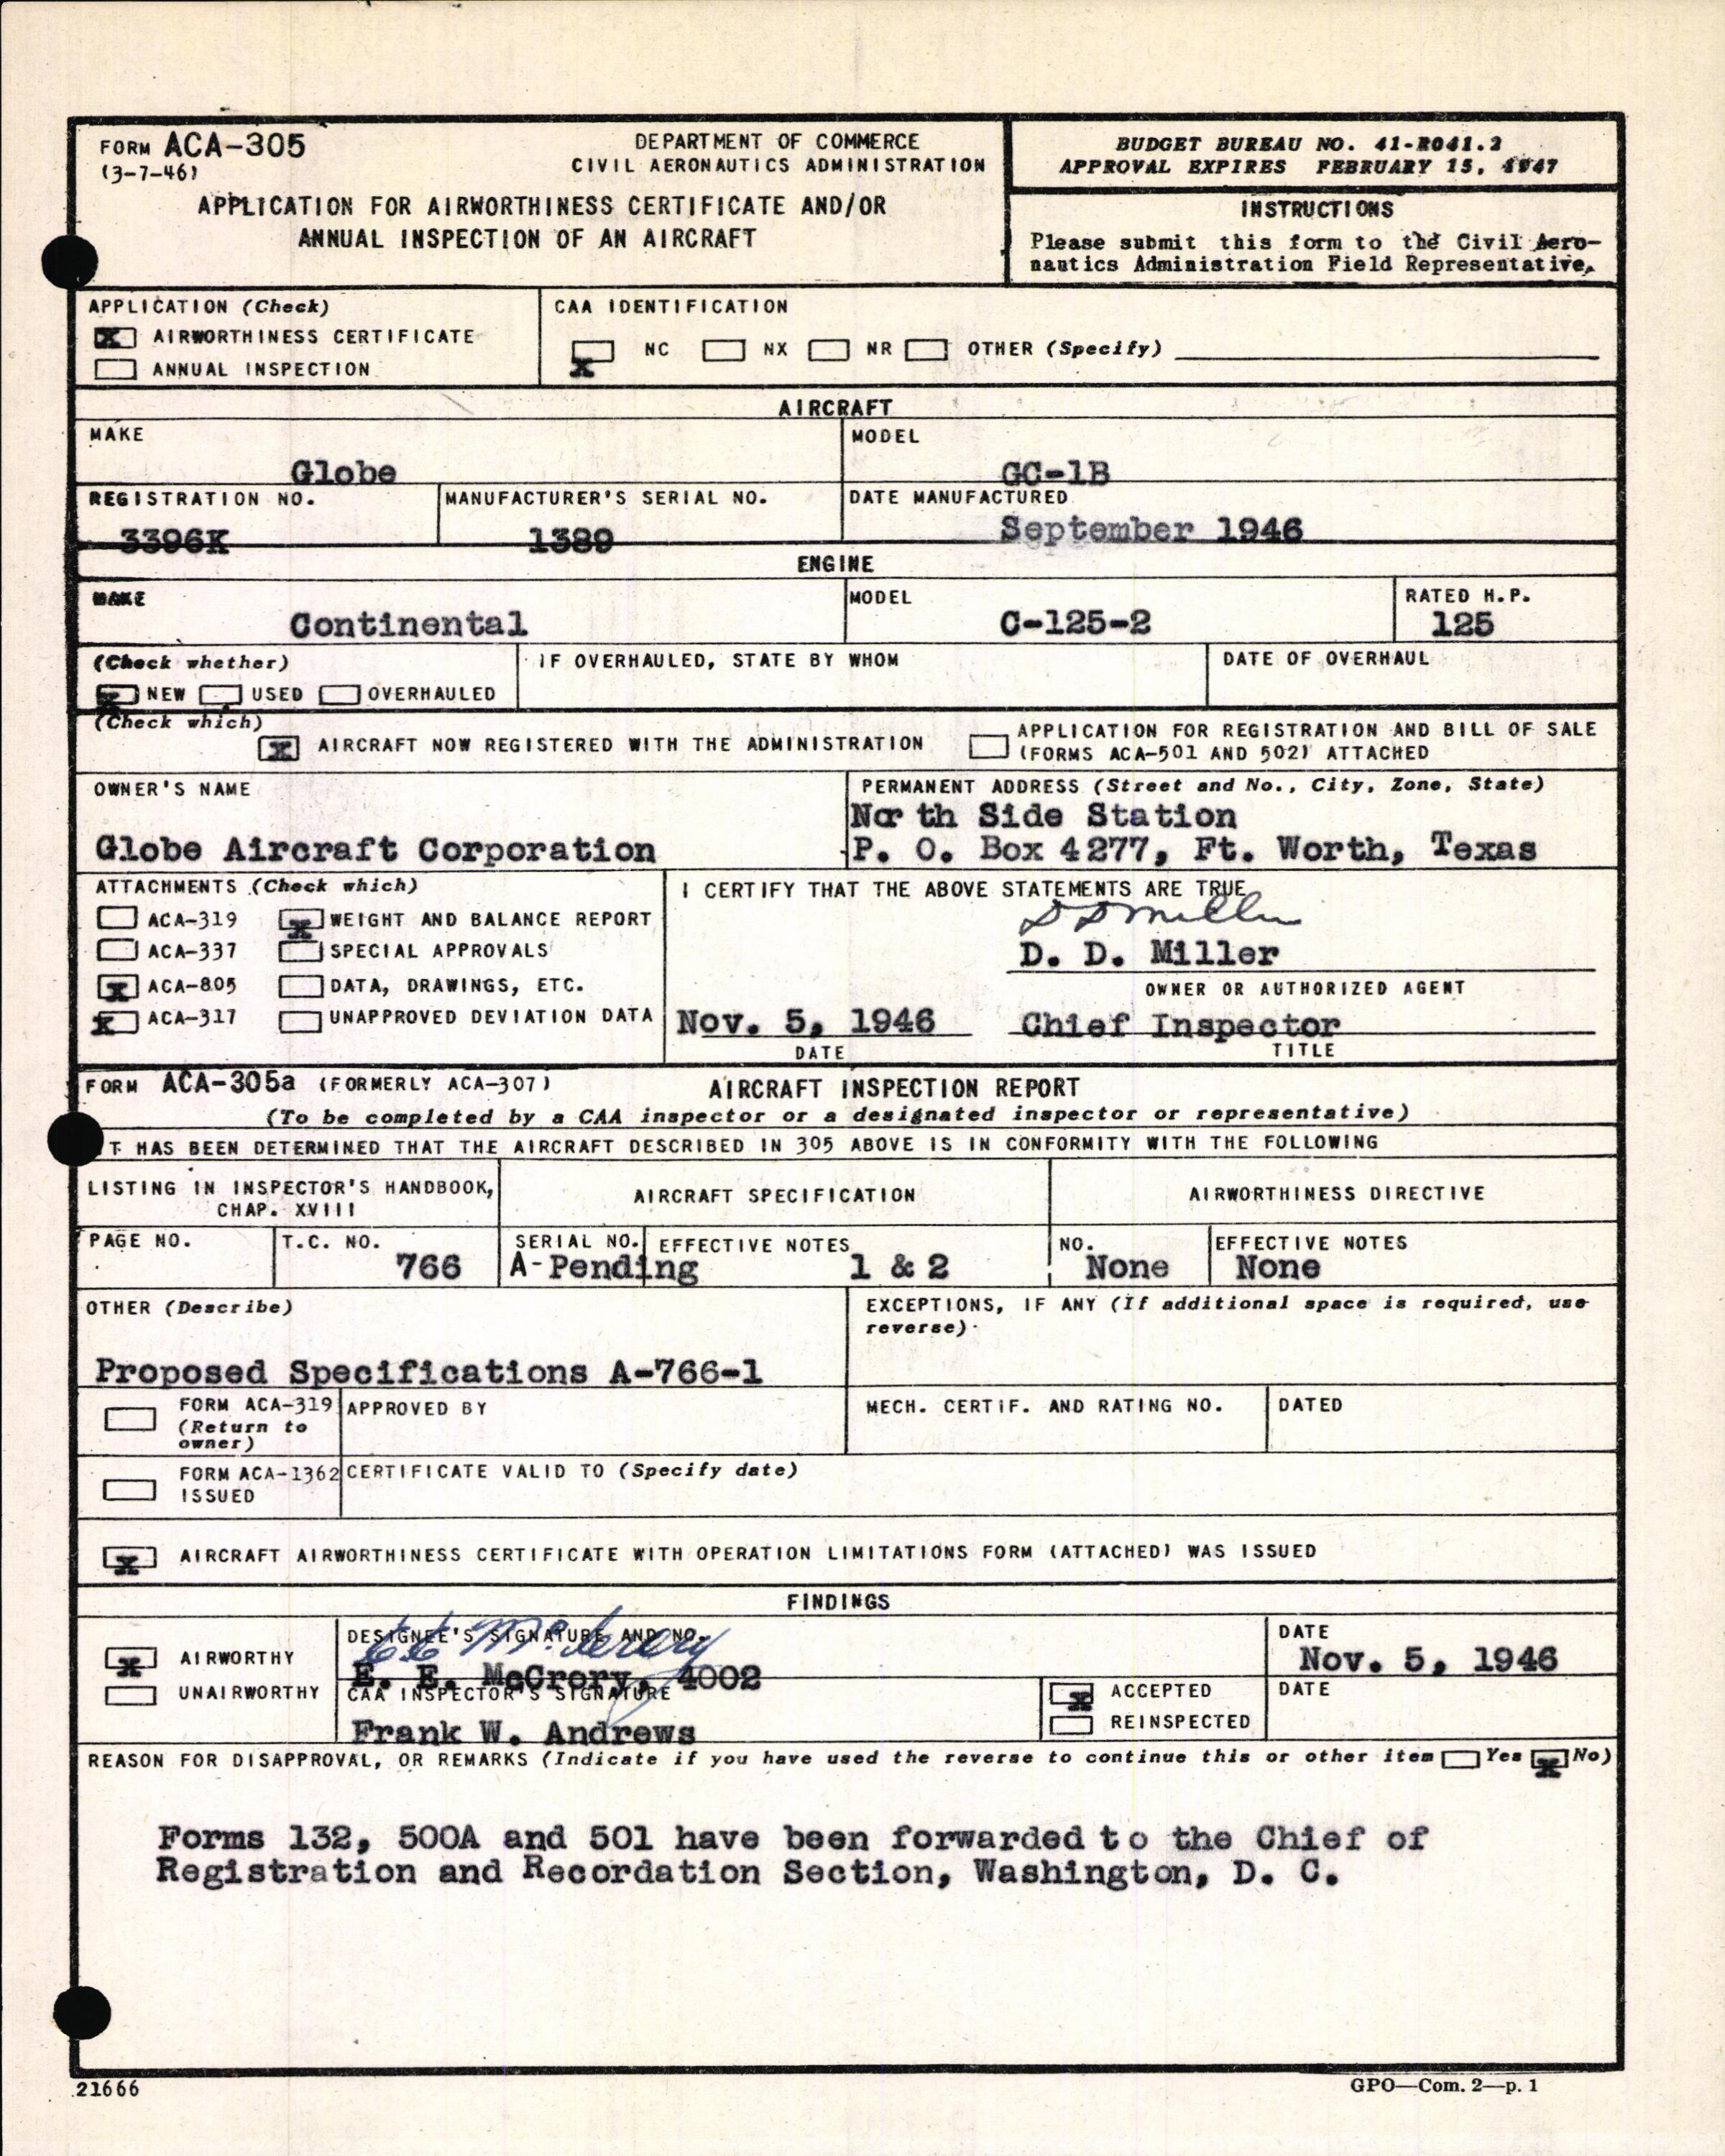 FORM ACA-305
(3-7-46)
DEPARTMENT OF COMMERCE
CIVIL AERONAUTICS ADMINISTRATION
APPLICATION FOR AIRWORTHINESS CERTIFICATE AND/OR
ANNUAL INSPECTION OF AN AIRCRAFT
BUDGET BUREAU NO. 41-R041.2
APPROVAL EXPIRES FEBRUARY 15, 1947
INSTRUCTIONS
Please submit this form to the Civil Aero-
nautics Administration Field Representative.
APPLICATION (Check)
X AIRWORTHINESS CERTIFICATE
ANNUAL INSPECTION
CAA IDENTIFICATION
X NC NX NR OTHER (Specify)
AIRCRAFT
MAKE
Globe
MODEL
GC-1B
REGISTRATION NO.
3396K
MANUFACTURER'S SERIAL NO.
1389
DATE MANUFACTURED
September 1946
ENGINE
MAKE
Continental
MODEL
C-125-2
RATED H.P.
125
(Check whether)
X NEW USED OVERHAULED
IF OVERHAULED, STATE BY WHOM
DATE OF OVERHAUL
(Check which)
X AIRCRAFT NOW REGISTERED WITH THE ADMINISTRATION
APPLICATION FOR REGISTRATION AND BILL OF SALE
(FORMS ACA-501 AND 502) ATTACHED
OWNER'S NAME
Globe Aircraft Corporation
PERMANENT ADDRESS (Street and No., City, Zone, State)
North Side Station
P. O. Box 4277, Ft. Worth, Texas
ATTACHMENTS (Check which)
ACA-319 X WEIGHT AND BALANCE REPORT
ACA-337 SPECIAL APPROVALS
X ACA-805 DATA, DRAWINGS, ETC.
X ACA-317 UNAPPROVED DEVIATION DATA
I CERTIFY THAT THE ABOVE STATEMENTS ARE TRUE
D D Miller
D. D. Miller
OWNER OR AUTHORIZED AGENT
Nov. 5, 1946 Chief Inspector
DATE TITLE
FORM ACA-305a (FORMERLY ACA-307) AIRCRAFT INSPECTION REPORT
(To be completed by a CAA inspector or a designated inspector or representative)
IT HAS BEEN DETERMINED THAT THE AIRCRAFT DESCRIBED IN 305 ABOVE IS IN CONFORMITY WITH THE FOLLOWING
LISTING IN INSPECTOR'S HANDBOOK,
CHAP. XVIII
AIRCRAFT SPECIFICATION
AIRWORTHINESS DIRECTIVE
PAGE NO.
T.C. NO.
766
SERIAL NO.
A-Pending
EFFECTIVE NOTES
1 & 2
NO.
None
EFFECTIVE NOTES
None
OTHER (Describe)
Proposed Specifications A-766-1
EXCEPTIONS, IF ANY (If additional space is required, use
reverse)
FORM ACA-319
(Return to
owner)
APPROVED BY
MECH. CERTIF. AND RATING NO.
DATED
FORM ACA-1362
ISSUED
CERTIFICATE VALID TO (Specify date)
X AIRCRAFT AIRWORTHINESS CERTIFICATE WITH OPERATION LIMITATIONS FORM (ATTACHED) WAS ISSUED
FINDINGS
X AIRWORTHY
UNAIRWORTHY
DESIGNEE'S SIGNATURE AND NO.
E E McCrory
E. E. McCrory, 4002
DATE
Nov. 5, 1946
CAA INSPECTOR'S SIGNATURE
Frank W. Andrews
X ACCEPTED
REINSPECTED
DATE
REASON FOR DISAPPROVAL, OR REMARKS (Indicate if you have used the reverse to continue this or other item Yes X No)
Forms 132, 500A and 501 have been forwarded to the Chief of
Registration and Recordation Section, Washington, D. C.
21666
GPO—Com. 2—p. 1